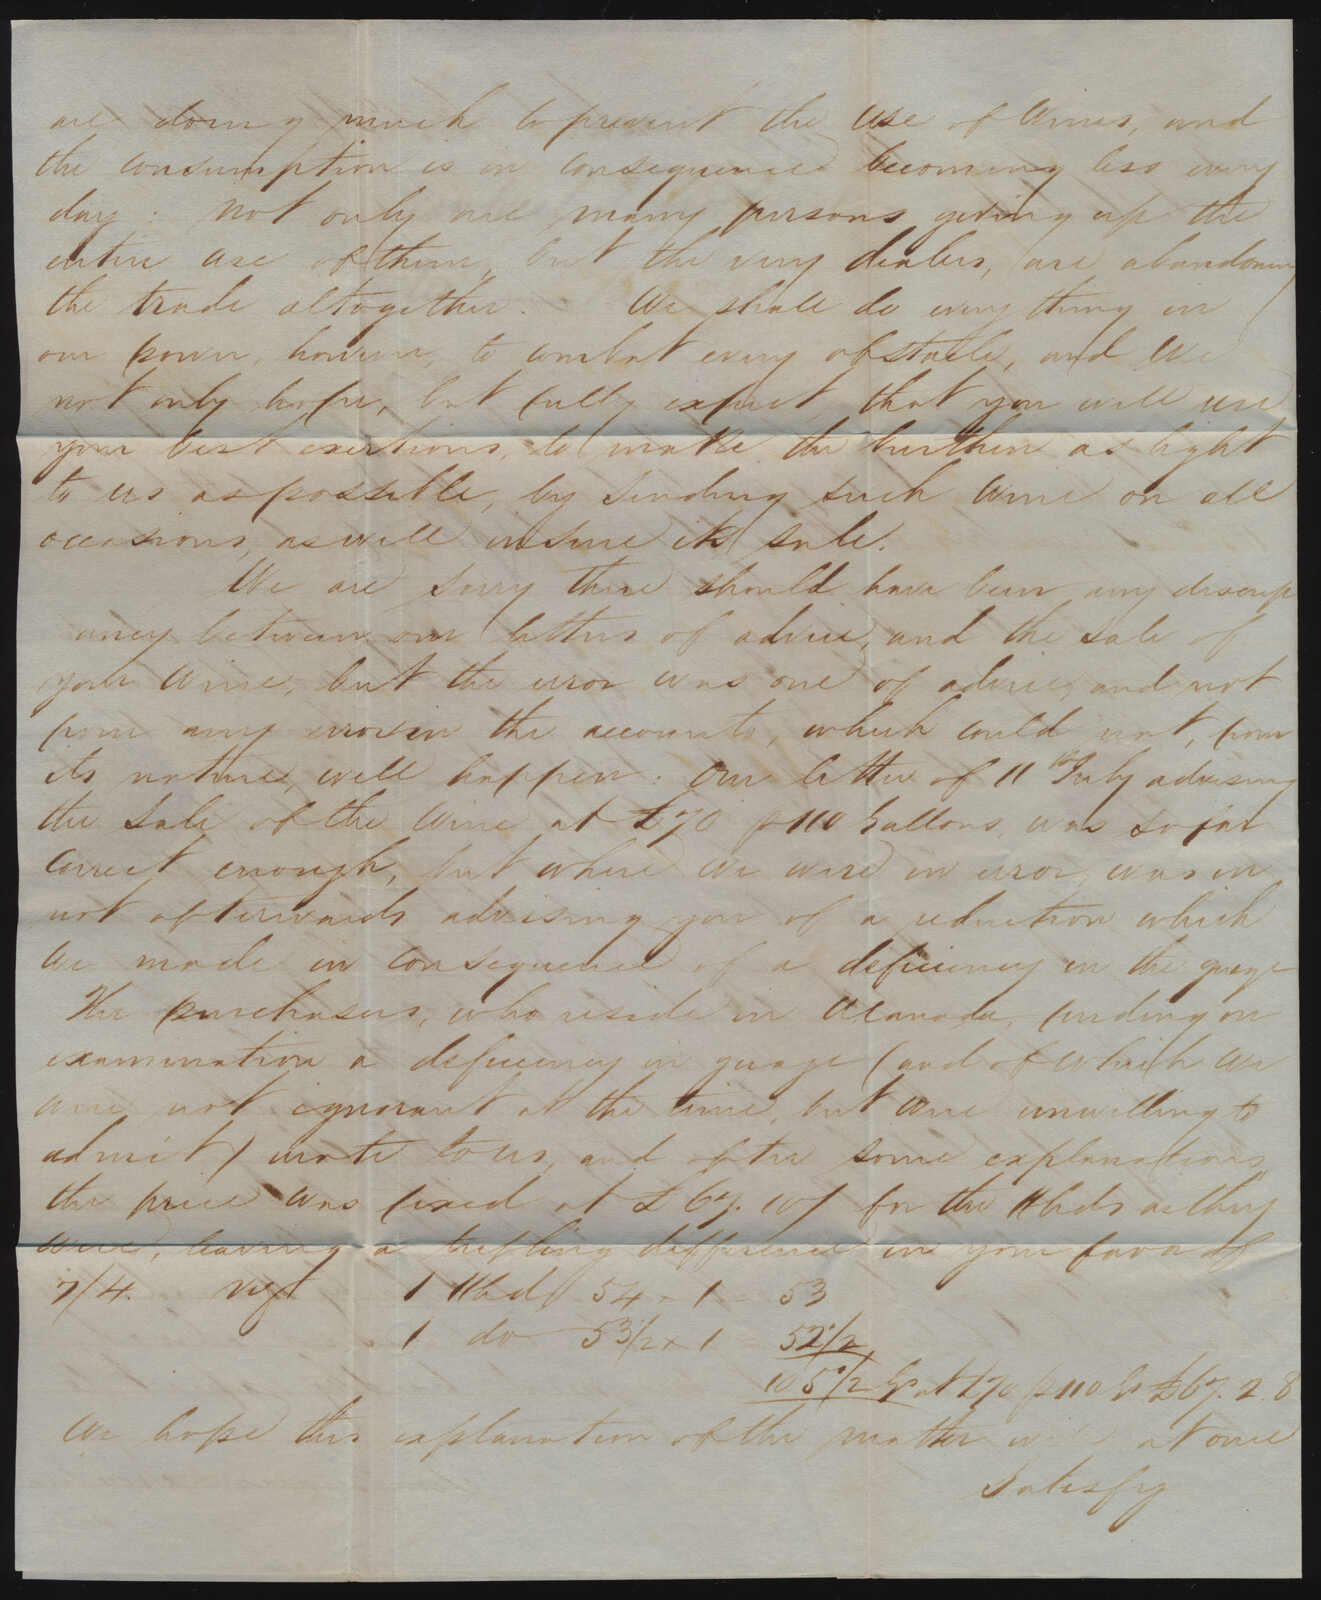 are doing much to prevent the use of Wines, and
the consumption is in consequence becoming less every
day: Not only are many persons giving up the
entire use of them, but the very dealers, are abandoning
the trade altogether. We shall do every thing in
our power, however, to combat every obstacle, and we
not only hope, but fully expect that you will use
your best exertions, to make the burthen as light
to us as possible, by sending such Wine on all
occasions, as will insure its sale.
We are sorry there should have been any discrep
ancy between our letters of advice, and the sale of
your Wine, but the error was one of advice, and not
from any error in the accounts, which could not, from
its nature, well happen: Our letter of 11th July advising
the Sale of the Wine at £70 p 110 Gallons, was so far
correct enough, but where we were in error, was in
not afterwards advising you of a reduction which
we made in consequence of a deficiency in the guage
The purchasers, who reside in UCanada, finding on
examination a deficiency in guage (and of which we
were not ignorant at the time, but were unwilling to
admit) wrote to us, and after some explanations,
the price was fixed at £67. 10/ for the Hhds as they
were, leaving a trifling difference in your favor of
7/4. 1 Hhd 54 - 1 = 53
1 do 53 1/2 - 1 52 1/2
105 1/2 Gs at £70 p 110 Gs £67. 2. 8
We hope this explanation of the matter will at once
satisfy